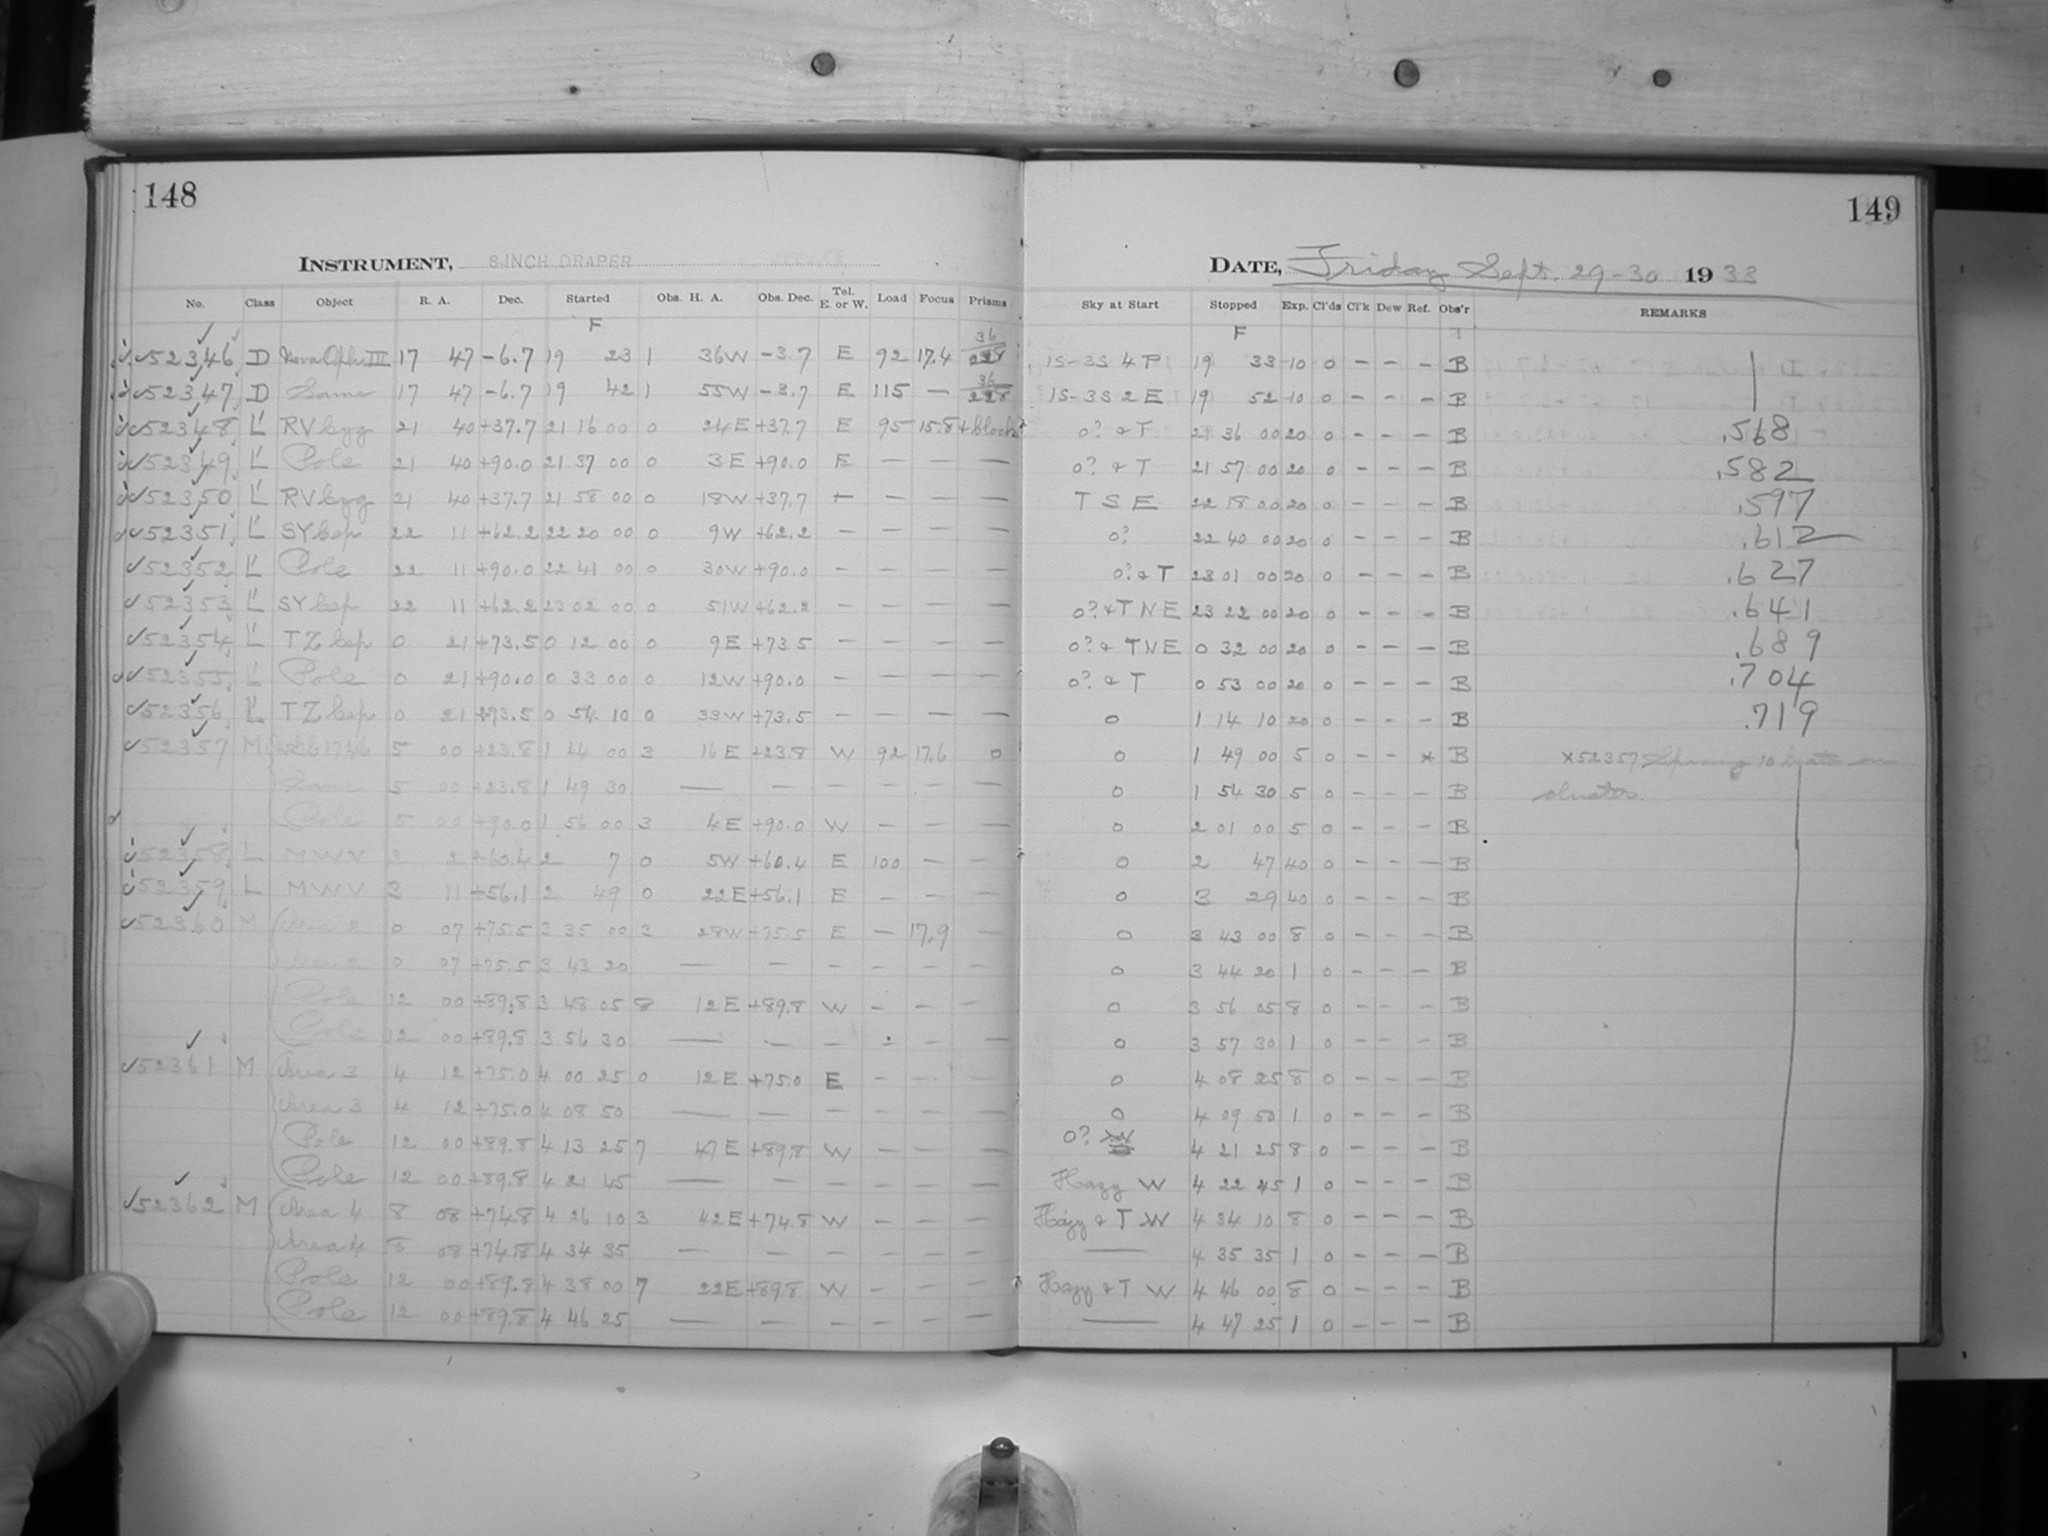 148
INSTRUMENT, 8-INCH DRAPER
No. Class Object R. A. Dec. Started Obs. H. A. Obs. Dec. Tel. E. or W. Load Focus Prisms
F
52346 D Nova Oph III 17 47 -6.7 19 23 1 36W -3.7 E 92 17.4 36
52347 D Same 17 47 -6.7 19 42 1 55W -3.7 E 115 — 36 228
52348 L' RV Cyg 21 40 +37.7 21 16 00 0 24E +37.7 E 95 15.8 + block
52349 L' Pole 21 40 +90.0 21 37 00 0 3E +90.0 E — — —
52350 L' RV Cyg 21 40 +37.7 21 58 00 0 18W +37.7 — — — —
52351 L' SY Cep 22 11 +62.2 22 20 00 0 9W +62.2 — — — —
52352 L' Pole 22 11 +90.0 22 41 00 0 30W +90.0 — — — —
52353 L' SY Cep 22 11 +62.2 23 02 00 0 51W +62.2 — — — —
52354 L' TZ Cep 0 21 +73.5 0 12 00 0 9E +73.5 — — — —
52355 L' Pole 0 21 +90.0 0 33 00 0 12W +90.0 — — — —
52356 L' TZ Cep 0 21 +73.5 0 54 10 0 33W +73.5 — — — —
52357 M 1746 5 00 +23.8 1 44 00 3 16E +23.8 W 92 17.6 0
Same 5 00 +23.8 1 49 30 — — — — — —
Pole 5 00 +90.0 1 56 00 3 4E +90.0 W — — —
52358 L MWV 2 2 +60.4 2 7 0 5W +60.4 E 100 — —
52359 L MWV 3 11 +56.1 2 49 0 22E +56.1 E — — —
52360 M Area 2 0 07 +75.5 3 35 00 3 28W +75.5 E — 17.9 —
Area 2 0 07 +75.5 3 43 20 — — — — — —
Pole 12 00 +89.8 3 48 05 8 12E +89.8 W — — —
Pole 12 00 +89.8 3 56 30 — — — — — —
52361 M Area 3 4 12 +75.0 4 00 25 0 12E +75.0 E — — —
Area 3 4 12 +75.0 4 08 50 — — — — — —
Pole 12 00 +89.8 4 13 25 7 47E +89.8 W — — —
Pole 12 00 +89.8 4 21 45 — — — — — —
52362 M Area 4 8 08 +74.8 4 26 10 3 42E +74.8 W — — —
Area 4 8 08 +74.8 4 34 35 — — — — — —
Pole 12 00 +89.8 4 38 00 7 22E +89.8 W — — —
Pole 12 00 +89.8 4 46 25 — — — — — —
149
DATE, Friday Sept. 29-30 1933
Sky at Start Stopped Exp. Cl'ds Cl'k Dew Ref. Obs'r REMARKS
F
1S-3S 4 P 19 33 10 0 – – – B
1S-3S 2 E 19 52 10 0 – – – B
0? & T 21 36 00 20 0 – – – B .568
0? & T 21 57 00 20 0 – – – B .582
T S E 22 18 00 20 0 – – – B .597
0? 22 40 00 20 0 – – – B .612
0? & T 23 01 00 20 0 – – – B .627
0? & T N E 23 22 00 20 0 – – – B .641
0? & T N E 0 32 00 20 0 – – – B .689
0? & T 0 53 00 20 0 – – – B .704
0 1 14 10 20 0 – – – B .719
0 1 49 00 5 0 – – * B *52357 10 on
0 1 54 30 5 0 – – – B
0 2 01 00 5 0 – – – B
0 2 47 40 0 – – – B
0 3 29 40 0 – – – B
0 3 43 00 8 0 – – – B
0 3 44 20 1 0 – – – B
0 3 56 05 8 0 – – – B
0 3 57 30 1 0 – – – B
0 4 08 25 8 0 – – – B
0 4 09 50 1 0 – – – B
0? 4 21 25 8 0 – – – B
Hazy W 4 22 45 1 0 – – – B
Hazy & T W 4 34 10 8 0 – – – B
— 4 35 35 1 0 – – – B
Hazy & T W 4 46 00 8 0 – – – B
— 4 47 25 1 0 – – – B